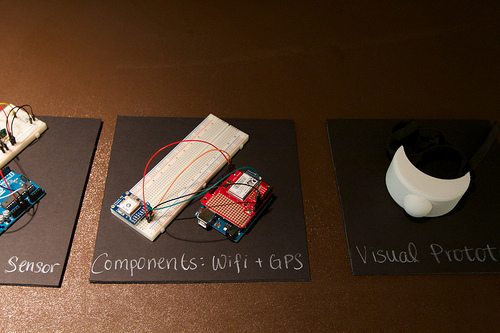 Sensor
Components: Wifi + GPS
Visual Protot